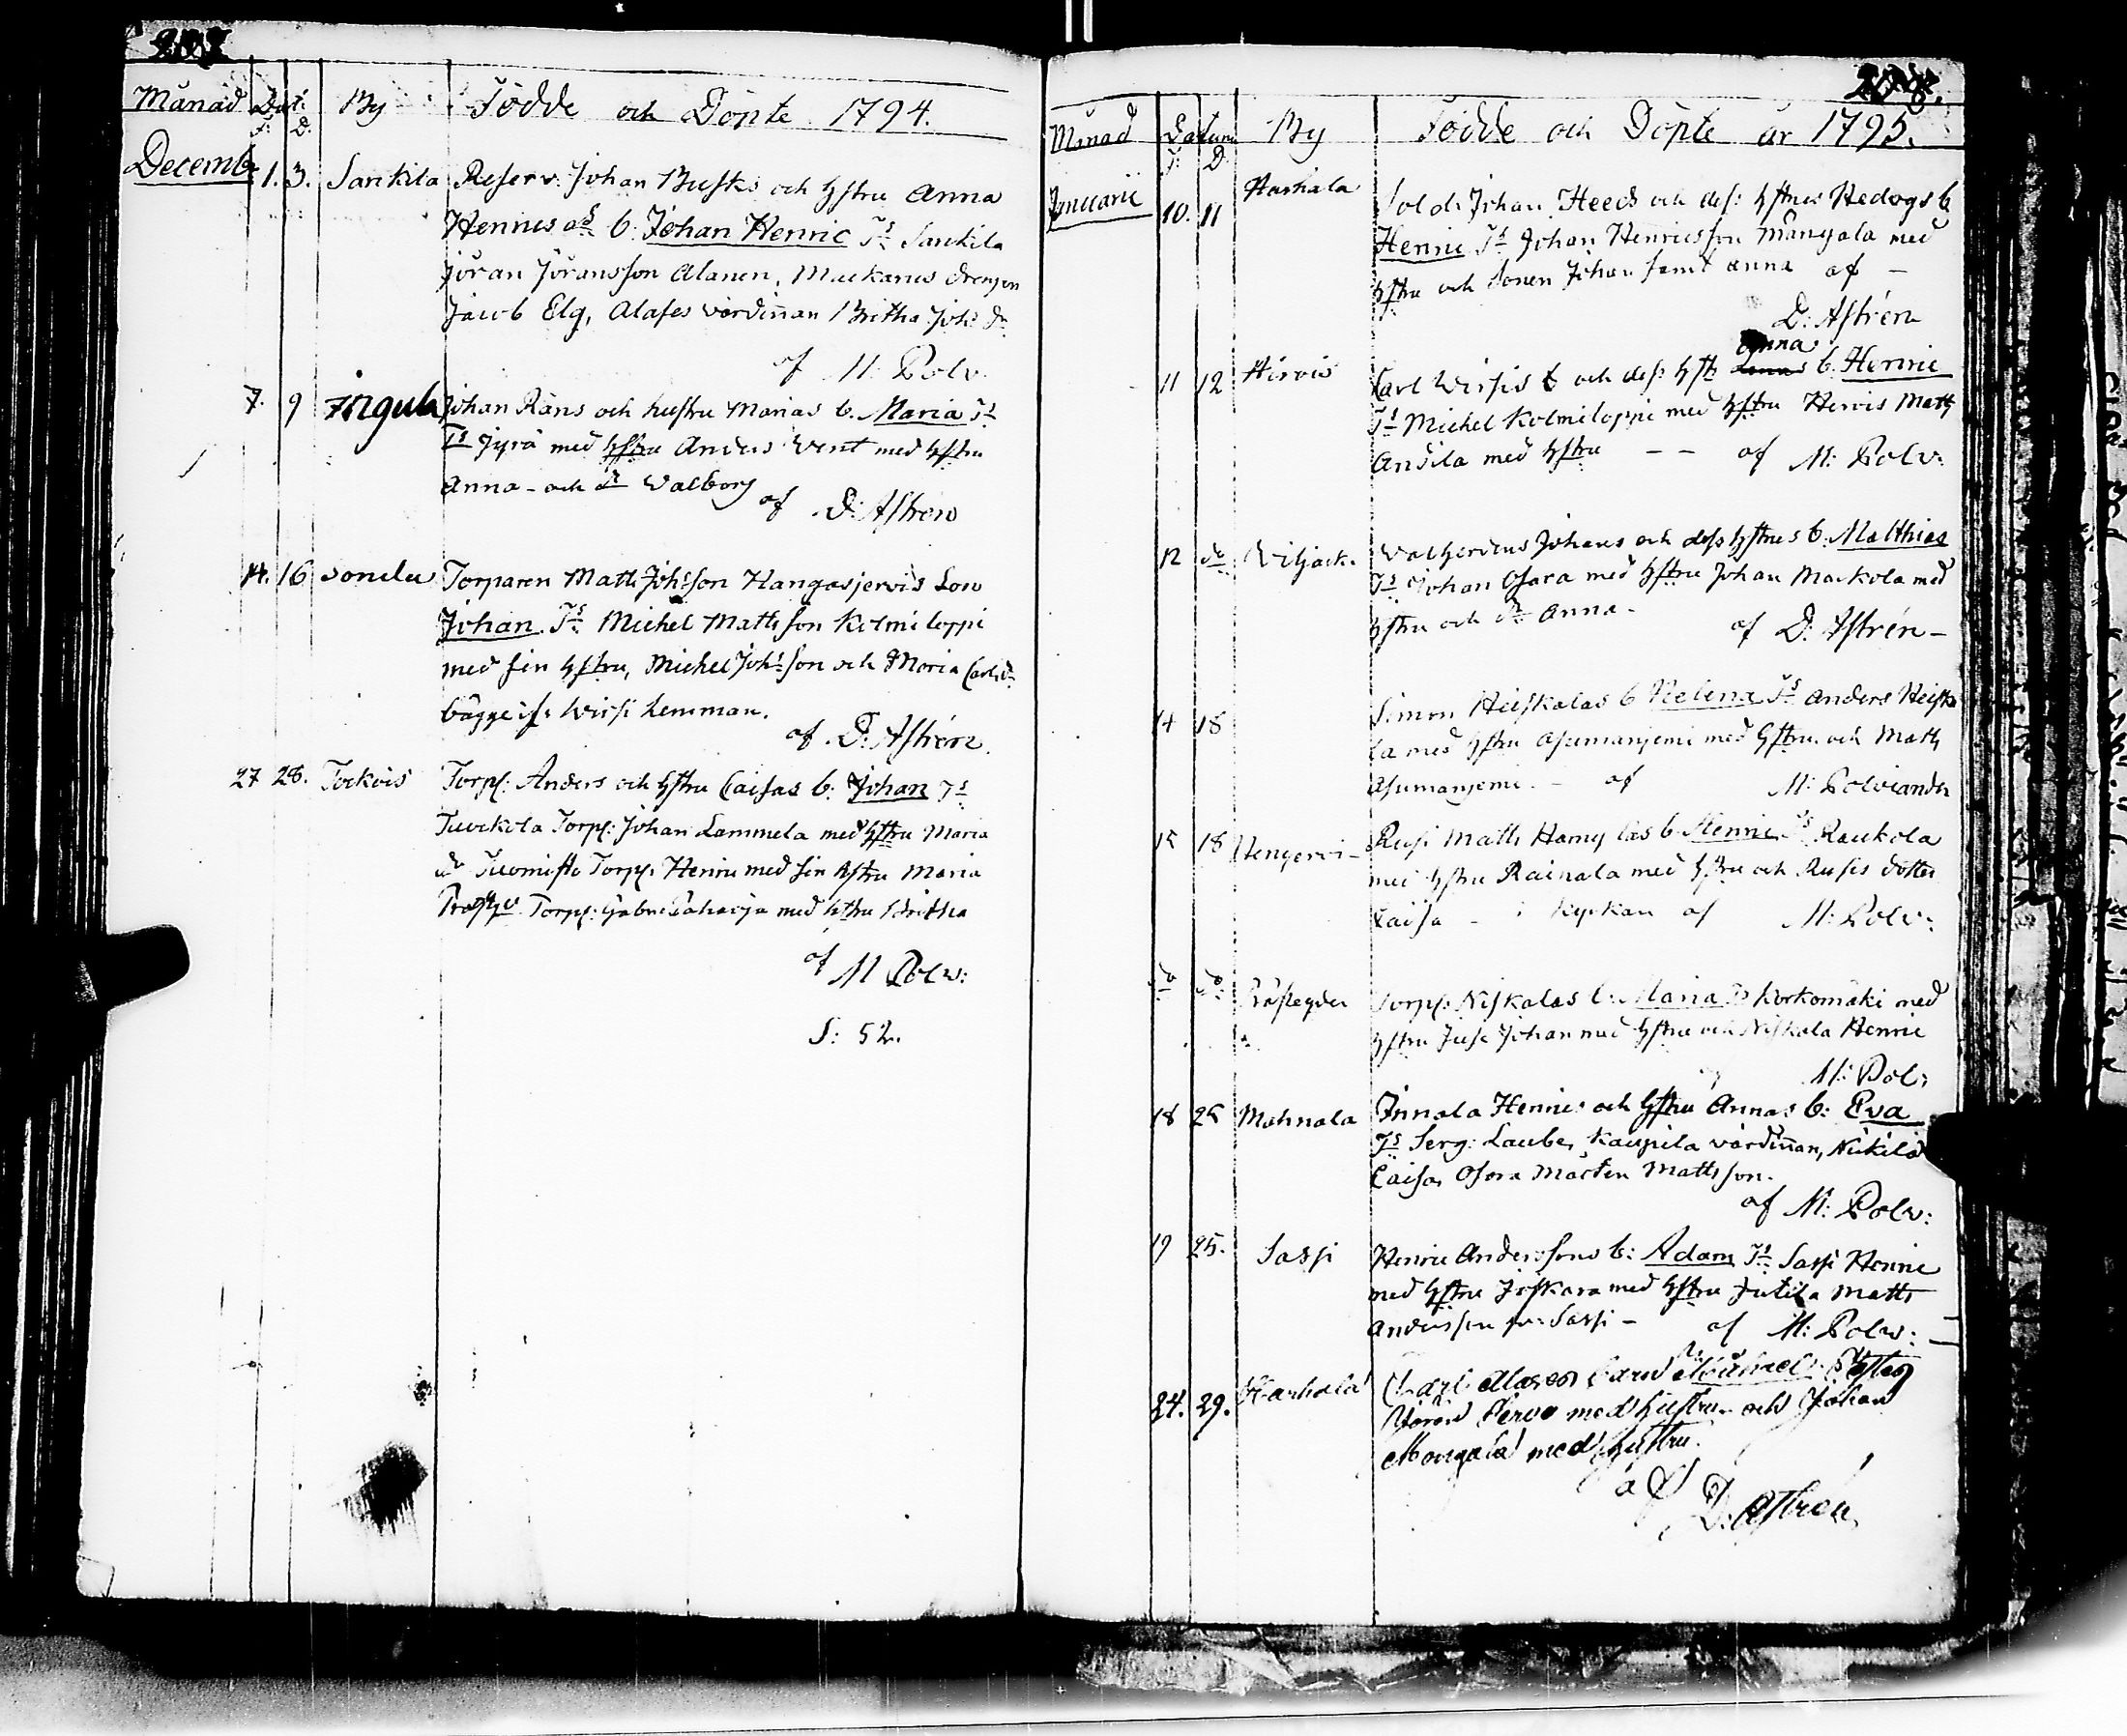 Månad Dat: By Födde och Döpte 1794.
F: D.
Decemb. 1. 3. Sankila Reserv: Johan Busks och hstru Anna
Henrics dr b. Johan Henric Fs Sankila
Jöran Jöransson Alanen, Muckarus drengen
Jacob Elg, Alases värdiñan Britha Joh: dr
af M: Polv.
7. 9 Johan Räns och hustru Marias b. Maria Fs
Jyrä med hstru Anders Vent med hstru
Anna - och dr Walborg af D: Astren
14. 16 Torparen Matts Johsson Hangasjervis Son
Johan. Fs Michel Mattsson Kolmiloppi
med sin hstru, Michel Johsson och Maria Carlsdr
bägge ifr Wirsi hemman.
af D: Astrén.
27 28. Tockois Torp: Anders och hstru Caisas b: Johan Fs
Tuockola Torp: Johan Lammela med hstru Maria
do Tuomisto Torp: Henric med sin hstru Maria
Torp: Gabr: med hstru Britha
af M Polv:
S: 52.
Månad Datum By Födde och Döpte år 1795.
F: D
Januarii 10. 11 Harhala Sold: Johan Heeds och dess hstrus Hedvigs b
Henric Fs Johan Henricsson Mångala med
hstru och Sonen Johan samt Anna af -
D: Astrén
Anna
11 12 Hirvis Carl Wirsis b och dess hstr b. Henric
Fs Michel Kolmiloppi med hstru Hervis Matts
Andila med hstru - - af M: Polv:
12 do Viljack. Johans och dess hstrus b: Matthias
Fs Johan Osara med hstru Johan Mackola med
hstru och dr Anna - af D: Astrén -
14 18 Simon Heiskalas b Helena Fs Anders Heiska
la med hstru Asumanjemi med hstru och Matts
Asumanjemi. - af M: Polviander
15 18 Rusi Matts b. Henric Fs Raukola
med hstru Rainala med hstru och Rusis dotter
Caisa - i Kyrkan af M: Polv:
do do Torp: Niskalas b: Maria Fs Korkomäki med
hstru Juse Johan med hstru och Niskala Henric
M: Pol:
18 25 Mahnala Innala Henrics och hstru Annas b: Eva
Fs Serg: Laube, Kaupila värdiñan, Nickilä
Caisa, Osora Mårten Mattsson.
af M: Polv:
19 25. Sassi Henric Anderssons b: Adam Fs Sassi Henric
med hstru Jyskara med hstru Jutila Matts
Andersson fr: Sassi - af M: Polv:
24. 29. Harhala Carl Alases barn Michael
Jöran Pervo med hustru och Johan
Mongala med hustru.
af D: Astren